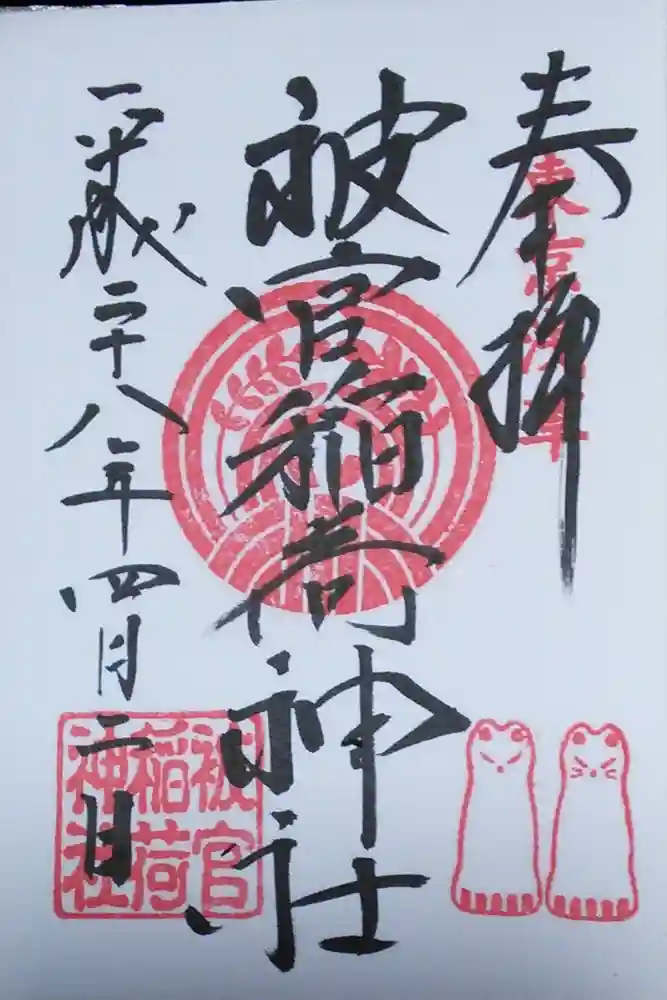 奉拝
東京浅草
被官稲荷神社
平成二十八年四月二日
被官
稲荷
神社